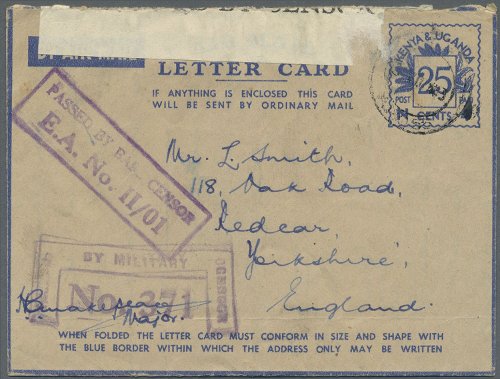 BY CENSOR
LETTER CARD
IF ANYTHING IS ENCLOSED THIS CARD
WILL BE SENT BY ORDINARY MAIL
KENYA & UGANDA
25
POST
CENTS
PASSED BY BASE CENSOR
E.A. No. 11/01
Mr. L. Smith,
118, Oak Road,
Redcar,
Yorkshire,
England.
BY MILITARY
CENSOR
No. 371
Major.
WHEN FOLDED THE LETTER CARD MUST CONFORM IN SIZE AND SHAPE WITH
THE BLUE BORDER WITHIN WHICH THE ADDRESS ONLY MAY BE WRITTEN